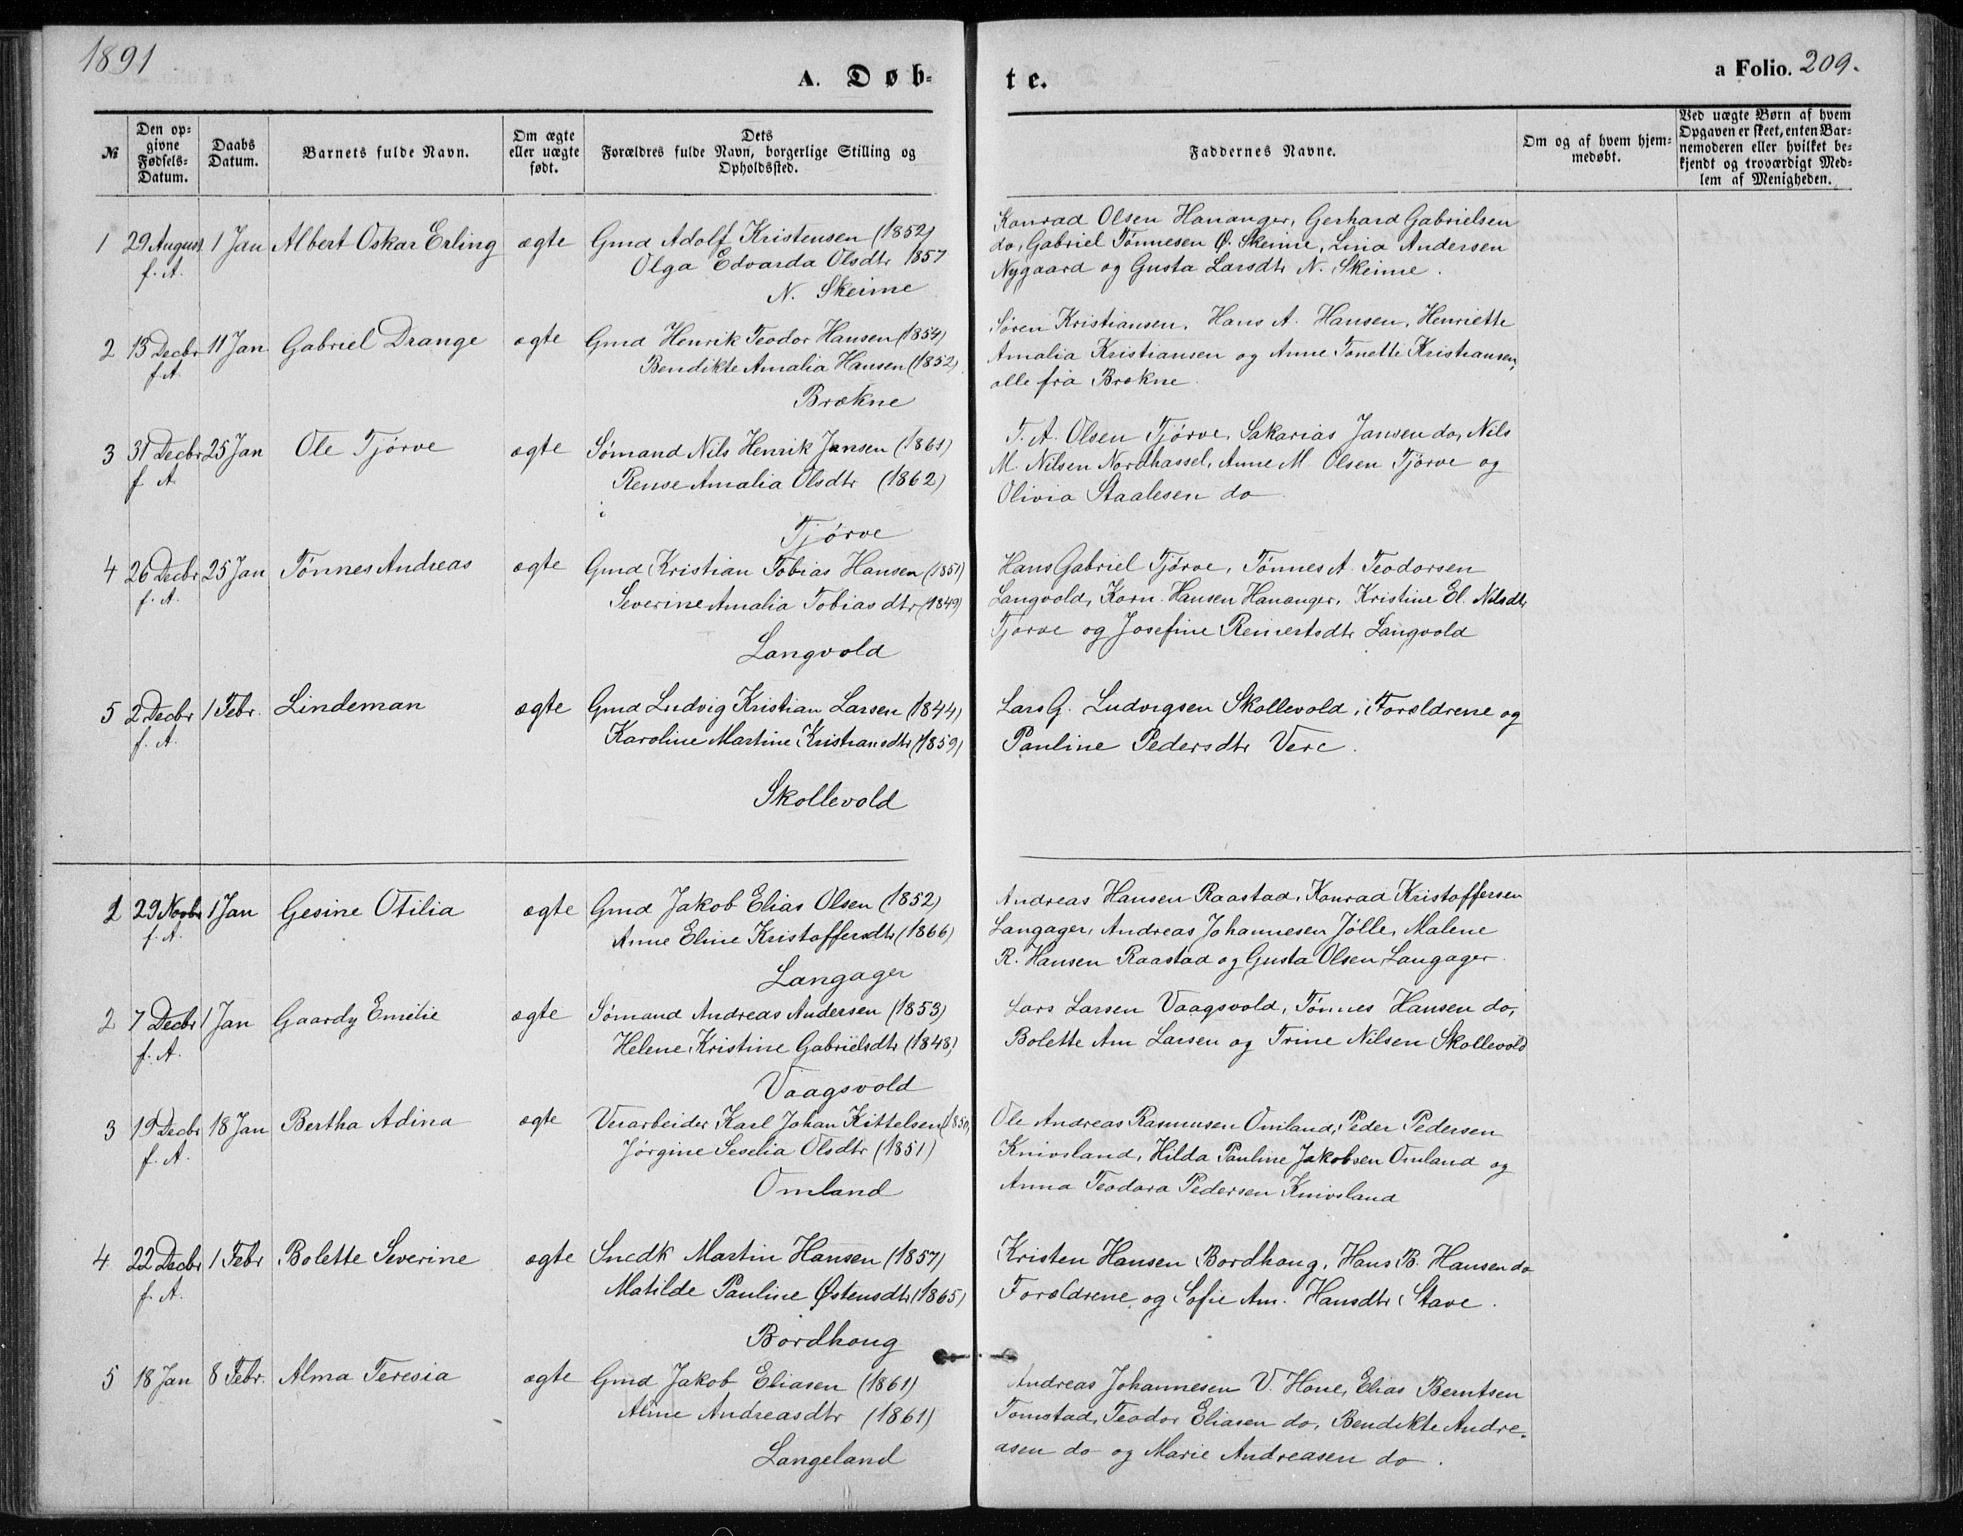 1891
A. Døb-
te.
a Folio. 209.
№
Den op-
givne
Fødsels-
Datum.
Daabs
Datum.
Barnets fulde Navn.
Om ægte
eller uægte
født.
Dets
Forældres fulde Navn, borgerlige Stilling og
Opholdssted.
Faddernes Navne.
Om og af hvem hjem-
medøbt.
Ved uægte Børn af hvem
Opgaven er skeet, enten Bar-
nemoderen eller hvilket be-
kjendt og troværdigt Med-
lem af Menigheden.
1 29 August 1 Jan Albert Oskar Erling ægte Gmd Adolf Kristensen (1852)
f. A. Olga Edvarda Olsdtr 1857
N. Skeime
Konrad Olsen Hananger, Gerhard Gabrielsen
do, Gabriel Tønnesen Ø. Skeime, Lina Andersen
Nygaard og Gusta Larsdtr N. Skeime.
2 15 Decbr 11 Jan Gabriel Drange ægte Gmd Henrik Teodor Hansen (1854)
f. A. Bendikte Amalia Hansen (1852)
Brækne
Søren Kristiansen, Hans A. Hansen, Henriette
Amalia Kristiansen og Anne Tonette Kristiansen,
alle fra Brækne.
3 31 Decbr 25 Jan Ole Tjørve ægte Sømand Nils Henrik Jansen (1861)
f. A. Rense Amalia Olsdtr (1862)
Tjørve
T. A. Olsen Tjørve, Sakarias Jansen do, Nils
M. Nilsen Nordhassel, Anne M. Olsen Tjørve og
Olivia Staalesen do
4 26 Decbr 25 Jan Tønnes Andreas ægte Gmd Kristian Tobias Hansen (1851)
f. A. Severine Amalia Tobiasdtr (1849)
Langvold
Hans Gabriel Tjørve, Tønnes A. Teodorsen
Langvold, Korn. Hansen Hananger, Kristine El. Nilsdtr
Tjørve og Josefine Reinertsdtr Langvold
5 2 Decbr 1 Febr. Lindeman ægte Gmd Ludvig Kristian Larsen (1844)
f. A. Karoline Martine Kristiansdtr (1859)
Skollevold
Lars G. Ludvigsen Skollevold, Forældrene og
Pauline Pedersdtr Vere.
1 29 Novbr 1 Jan Gesine Otilia ægte Gmd Jakob Elias Olsen (1852)
f. A. Anne Eline Kristoffersdtr (1866)
Langager
Andreas Hansen Raastad, Konrad Kristoffersen
Langager, Andreas Johannesen Jølle, Malene
R. Hansen Raastad og Gusta Olsen Langager.
2 7 Decbr 1 Jan Gaardy Emilie ægte Sømand Andreas Andersen (1853)
f. A. Helene Kristine Gabrielsdtr (1848)
Vaagsvold
Lars Larsen Vaagsvold, Tønnes Hansen do,
Bolette Am Larsen og Trine Nilsen Skollevold
3 19 Decbr 18 Jan Bertha Adina ægte Verarbeider Karl Johan Kittelsen (1850)
f. A. Jørgine Seselia Olsdtr (1851)
Omland
Ole Andreas Rasmusen Omland, Peder Pedersen
Knivsland, Hilda Pauline Jakobsen Omland og
Anna Teodora Pedersen Knivsland
4 22 Decbr 1 Febr Bolette Severine ægte Snedk Martin Hansen (1857)
f. A. Matilde Pauline Østensdtr (1865)
Bordhoug
Kristen Hansen Bordhoug, Hans B. Hansen do
Forældrene og Sofie Am. Hansdtr Stave.
5 18 Jan 8 Febr. Alma Teresia ægte Gmd Jakob Eliasen (1861)
Aline Andreasdtr (1861)
Langeland
Andreas Johannesen V. Hone, Elias Berntsen
Tomstad, Teodor Eliasen do, Bendikte Andre-
asen do og Marie Andreasen do.